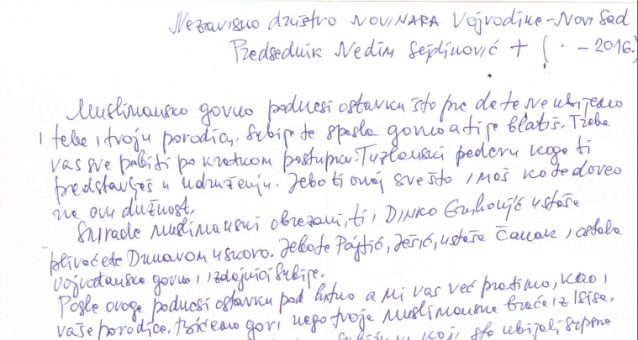 Nezavisno društvo NOVINARA Vojvodine-Novi Sad
Predsednik Nedim Sejdinović + ( · - 2016.)
Muslimansko govno podnesi ostavku što pre da te ne ubijemo
i tebe i tvoju porodicu. Srbija te spasla govno a ti je blatiš. Treba
vas sve pobiti po kratkom postupku. Tuzlanski pederu koga ti
predstavljaš u udruženju. Jebo ti onaj sve što imaš ko te doveo
na ovu dužnost.
Smrade muslimanski obrezani, ti i DINKO Gruhonjić ustaša
plivaćete Dunavom uskoro. Jebote Pajtić, Ješić, ustaša Čanak i ostala
vojvođanska govna i izdajnici Srbije.
Posle ovoga podnesi ostavku pod hitno a mi vas već pratimo, kao i
vaše porodice. Bićemo gori nego tvoja muslimanska braća iz Isisa.
koji ste ubijali